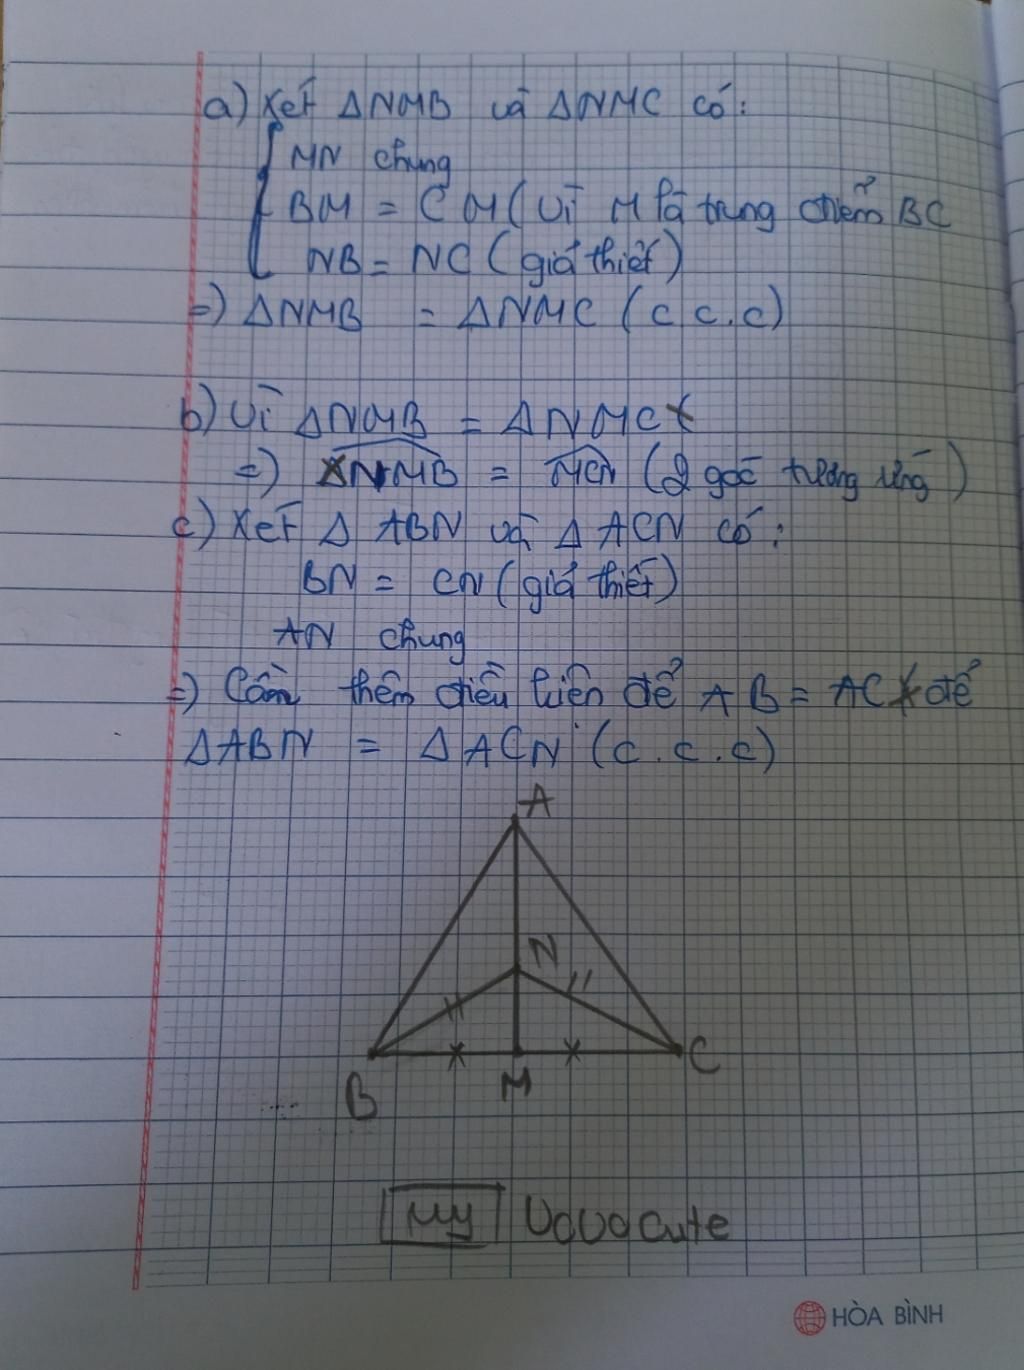 a) Xét ΔNMB và ΔNMC có:
MN chung
BM = CM (vì M là trung điểm BC
NB = NC (giả thiết)
=) ΔNMB = ΔNMC (c c.c)
b) Vì ΔNMB = ΔNMC
=) NMB = MCN (2 góc tương ứng)
c) Xét Δ ABN và Δ ACN có:
BN = CN (giả thiết)
AN chung
=) Cần thêm điều liên để AB = AC để
ΔABN = ΔACN (c.c.c)
A
N
B M C
My Vova cute
HÒA BÌNH